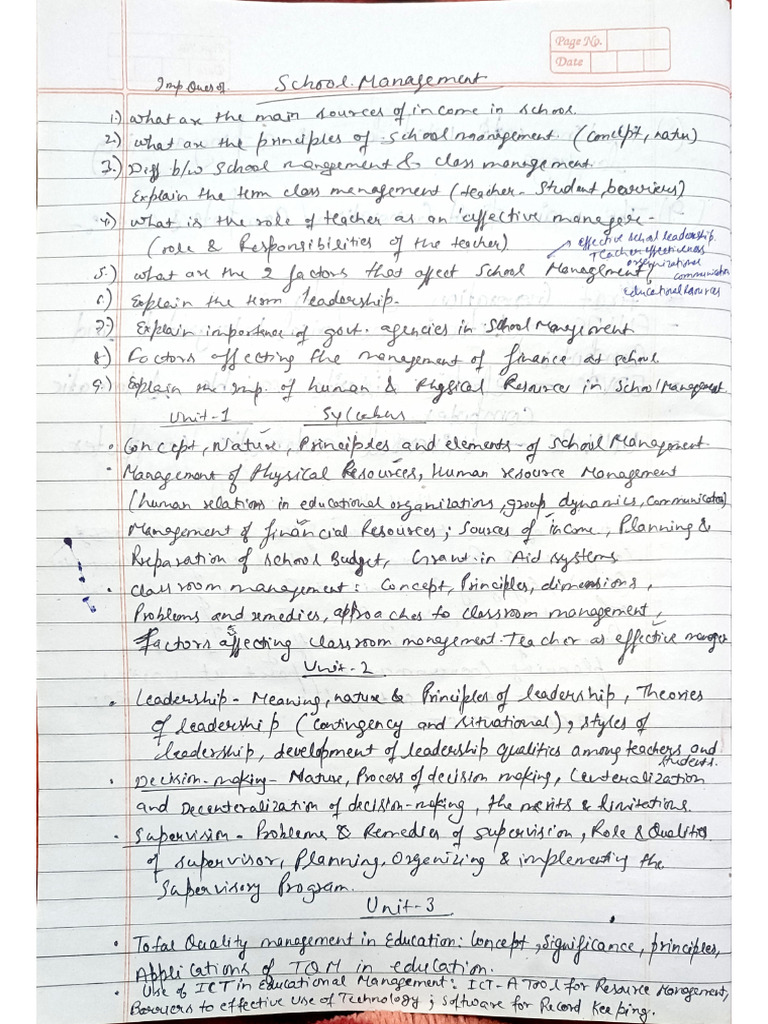 Page No.
Date
Imp Ques of School Management
1.) What are the main sources of income in school.
2.) What are the principles of school management. (concept, natur)
3.) Diff b/w School mangement & class management.
Explain the term class management (teacher - student, barriers)
4.) What is the role of teacher as an 'effective manager -
(role & Responsibilities of the teacher)
effective school leadership.
Teacher effectiveness
organizational
communication
Educational Resources
5.) What are the 2 factors that affect School Management
6.) Explain the term leadership.
7.) Explain importance of govt. agencies in School Management
8.) Factors affecting the management of finance at school.
9.) Explain the imp. of human & Physical Resource in School Management
Unit-1 Syllabus
• Concept, Nature, Principles and elements of School Management.
• Management of Physical Resources, Human resource Management
(human relations in educational organizations, group dynamics, communication)
Management of financial Resources; Sources of income, Planning &
Preparation of School Budget, Grant-in Aid systems
• Classroom management: Concept, Principles, dimensions,
Problems and remedies, approaches to classroom management,
Factors affecting classroom management. Teacher as effective manager
Unit-2
• Leadership - Meaning, nature & Principles of leadership, Theories
of leadership (contingency and situational), styles of
leadership, development of leadership qualities among teachers and
students.
• Decision-making - Nature, Process of decision making, Centeralization
and Decenteralization of decision-making, the merits & limitations.
• Supervision - Problems & Remedies of supervision, Role & Qualities
of supervisor, Planning, Organizing & implementing the
Supervisory Program.
Unit-3
• Total Quality management in Education: Concept, significance, principles,
Applications of TQM in education.
• Use of ICT in Educational Management: ICT - A Tool for Resource Management,
Barriers to effective Use of Technology; Software for Record Keeping.